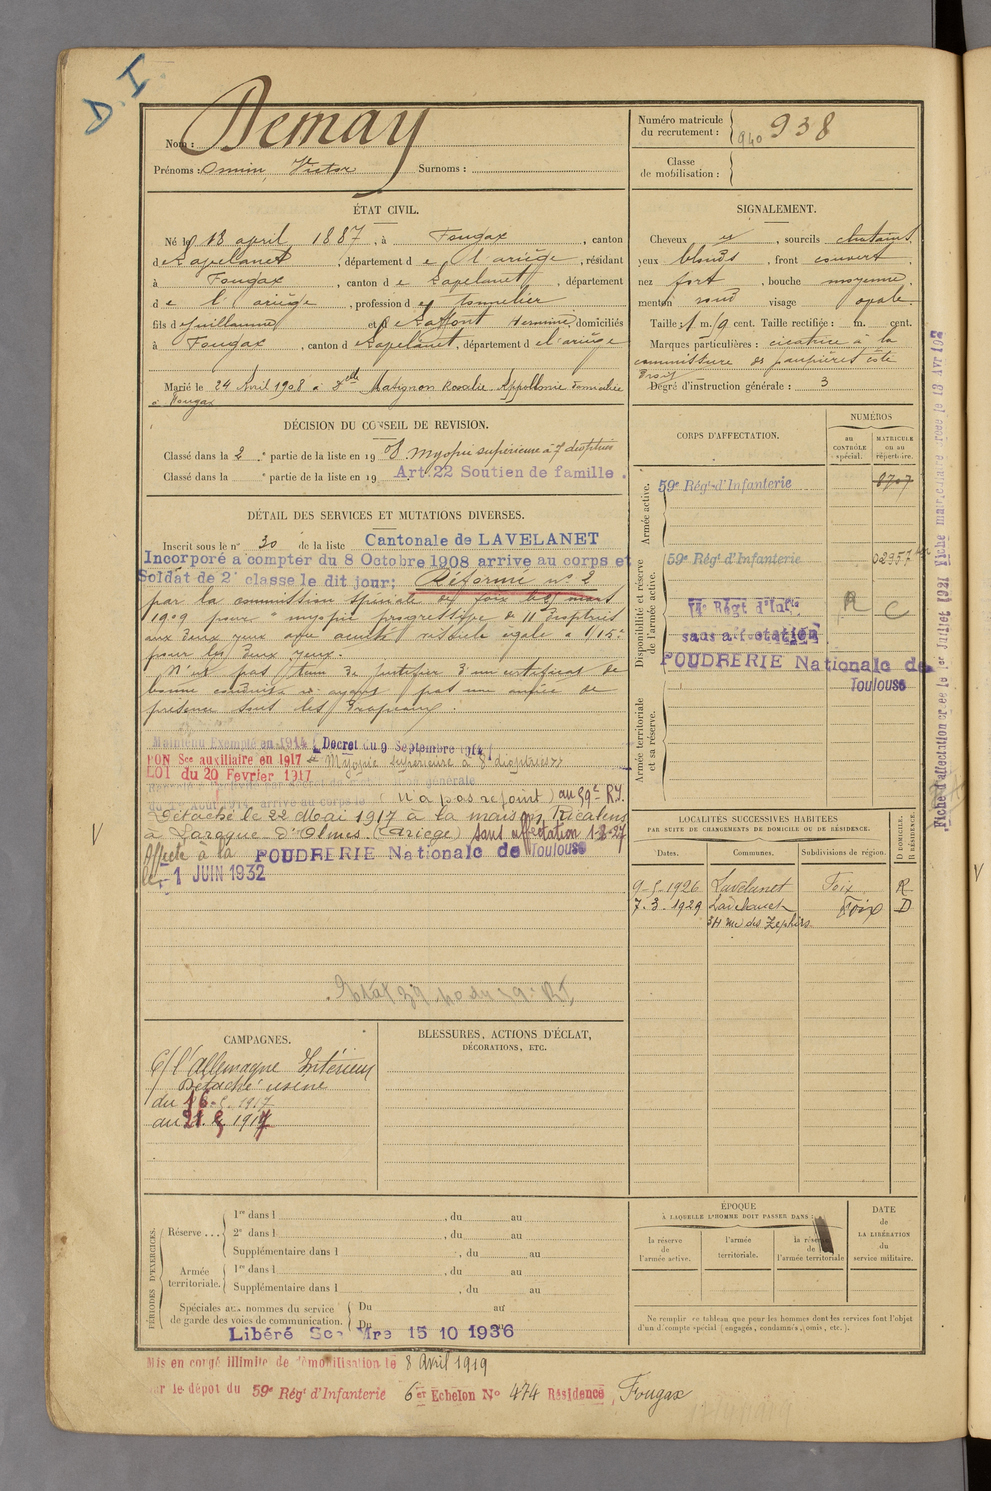 D. I.
Nom : Demay
Prénoms : Omin, Victor Surnoms :
Numéro matricule du recrutement : 940 938
Classe de mobilisation :
ÉTAT CIVIL.
Né le 18 april 1887, à Fougax, canton
de Lapelanet, département de l'ariège, résidant
à Fougax, canton de Lapelanet, département
de l'ariège, profession de tonnelier
fils de Guillaume et de Laffont Hermine, domiciliés
à Fougax, canton de Lapelanet, département de l'ariège
Marié le 24 Avril 1908 à Delle Matignon Rosalie, Appollonie Domiciliée
à Fougax
SIGNALEMENT.
Cheveux et, sourcils chatains
yeux blonds, front couvert
nez fort, bouche moyenne
menton rond visage ovale.
Taille : 1 m. cent. Taille rectifiée : m. cent.
Marques particulières : cicatrice à la
commissure des paupières côté
Droit
Degré d'instruction générale : 3
DÉCISION DU CONSEIL DE REVISION.
Classé dans la 2e partie de la liste en 1908. Myopie supérieure à 7 dioptries
Classé dans la e partie de la liste en 19 Art. 22 Soutien de famille.
DÉTAIL DES SERVICES ET MUTATIONS DIVERSES.
Inscrit sous le n° 30 de la liste Cantonale de LAVELANET
Incorporé à compter du 8 Octobre 1908 arrive au corps et
Soldat de 2e classe le dit jour; Réformé n° 2
par la commission spéciale de Foix le mars
1909 pour myopie progressive de 11 dioptries
aux deux yeux avec acuité visuelle égale à 1/15e
pour les deux yeux.
N'est pas tenu de justifier d'un certificat de
bonne conduite n'ayant pas une année de
présence sous les Drapeaux.
Maintenu Exempté en 1914 (Decret du 9 Septembre 1914)
BON Sce auxiliaire en 1917 Myopie supérieure à 8 dioptries
LOI du 20 Fevrier 1917
générale
arrivé au corps le (n'a pas rejoint) au 59e R.I.
Détaché le 22 Mai 1917 à la maison Ricalens
à Laroque d'Olmes (Ariège) Sans affectation 1-8-27
Affecté à la POUDRERIE Nationale de Toulouse
le 1 JUIN 1932
CORPS D'AFFECTATION.
NUMÉROS
au CONTRÔLE spécial.
MATRICULE ou au répertoire.
Armée active.
59e Régt d'Infanterie 8707
Disponibilité et réserve de l'armée active.
59e Régt d'Infanterie 02957
14e Régt d'Infie R C
sans affectation
POUDRERIE Nationale de
Toulouse
Armée territoriale et sa réserve.
LOCALITÉS SUCCESSIVES HABITÉES
PAR SUITE DE CHANGEMENTS DE DOMICILE OU DE RÉSIDENCE.
Dates. Communes. Subdivisions de région. D DOMICILE. R RÉSIDENCE.
9-5-1926 Lavelanet Foix R
7-3-1929 Lavelanet Foix D
34 rue des Zephirs
CAMPAGNES.
C/ l'Allemagne Intérieur
Détaché usine
du 16-5-1917
BLESSURES, ACTIONS D'ÉCLAT,
DÉCORATIONS, ETC.
PÉRIODES D'EXERCICES.
Réserve ...
1re dans l , du au
2e dans l , du au
Supplémentaire dans l , du au
Armée territoriale.
1re dans l , du au
Supplémentaire dans l , du au
Spéciales aux hommes du service de garde des voies de communication.
Du au
Du
Libéré Sce Mre 15 10 1936
ÉPOQUE
À LAQUELLE L'HOMME DOIT PASSER DANS :
la réserve de l'armée active.
l'armée territoriale.
la réserve de l'armée territoriale
DATE de LA LIBÉRATION du service militaire.
Ne remplir ce tableau que pour les hommes dont les services font l'objet
d'un décompte spécial (engagés, condamnés, omis, etc.).
Mis en congé illimité de démobilisation le 8 Avril 1919
par le dépôt du 59e Régt d'Infanterie 6e Echelon No 474 Résidence Fougax